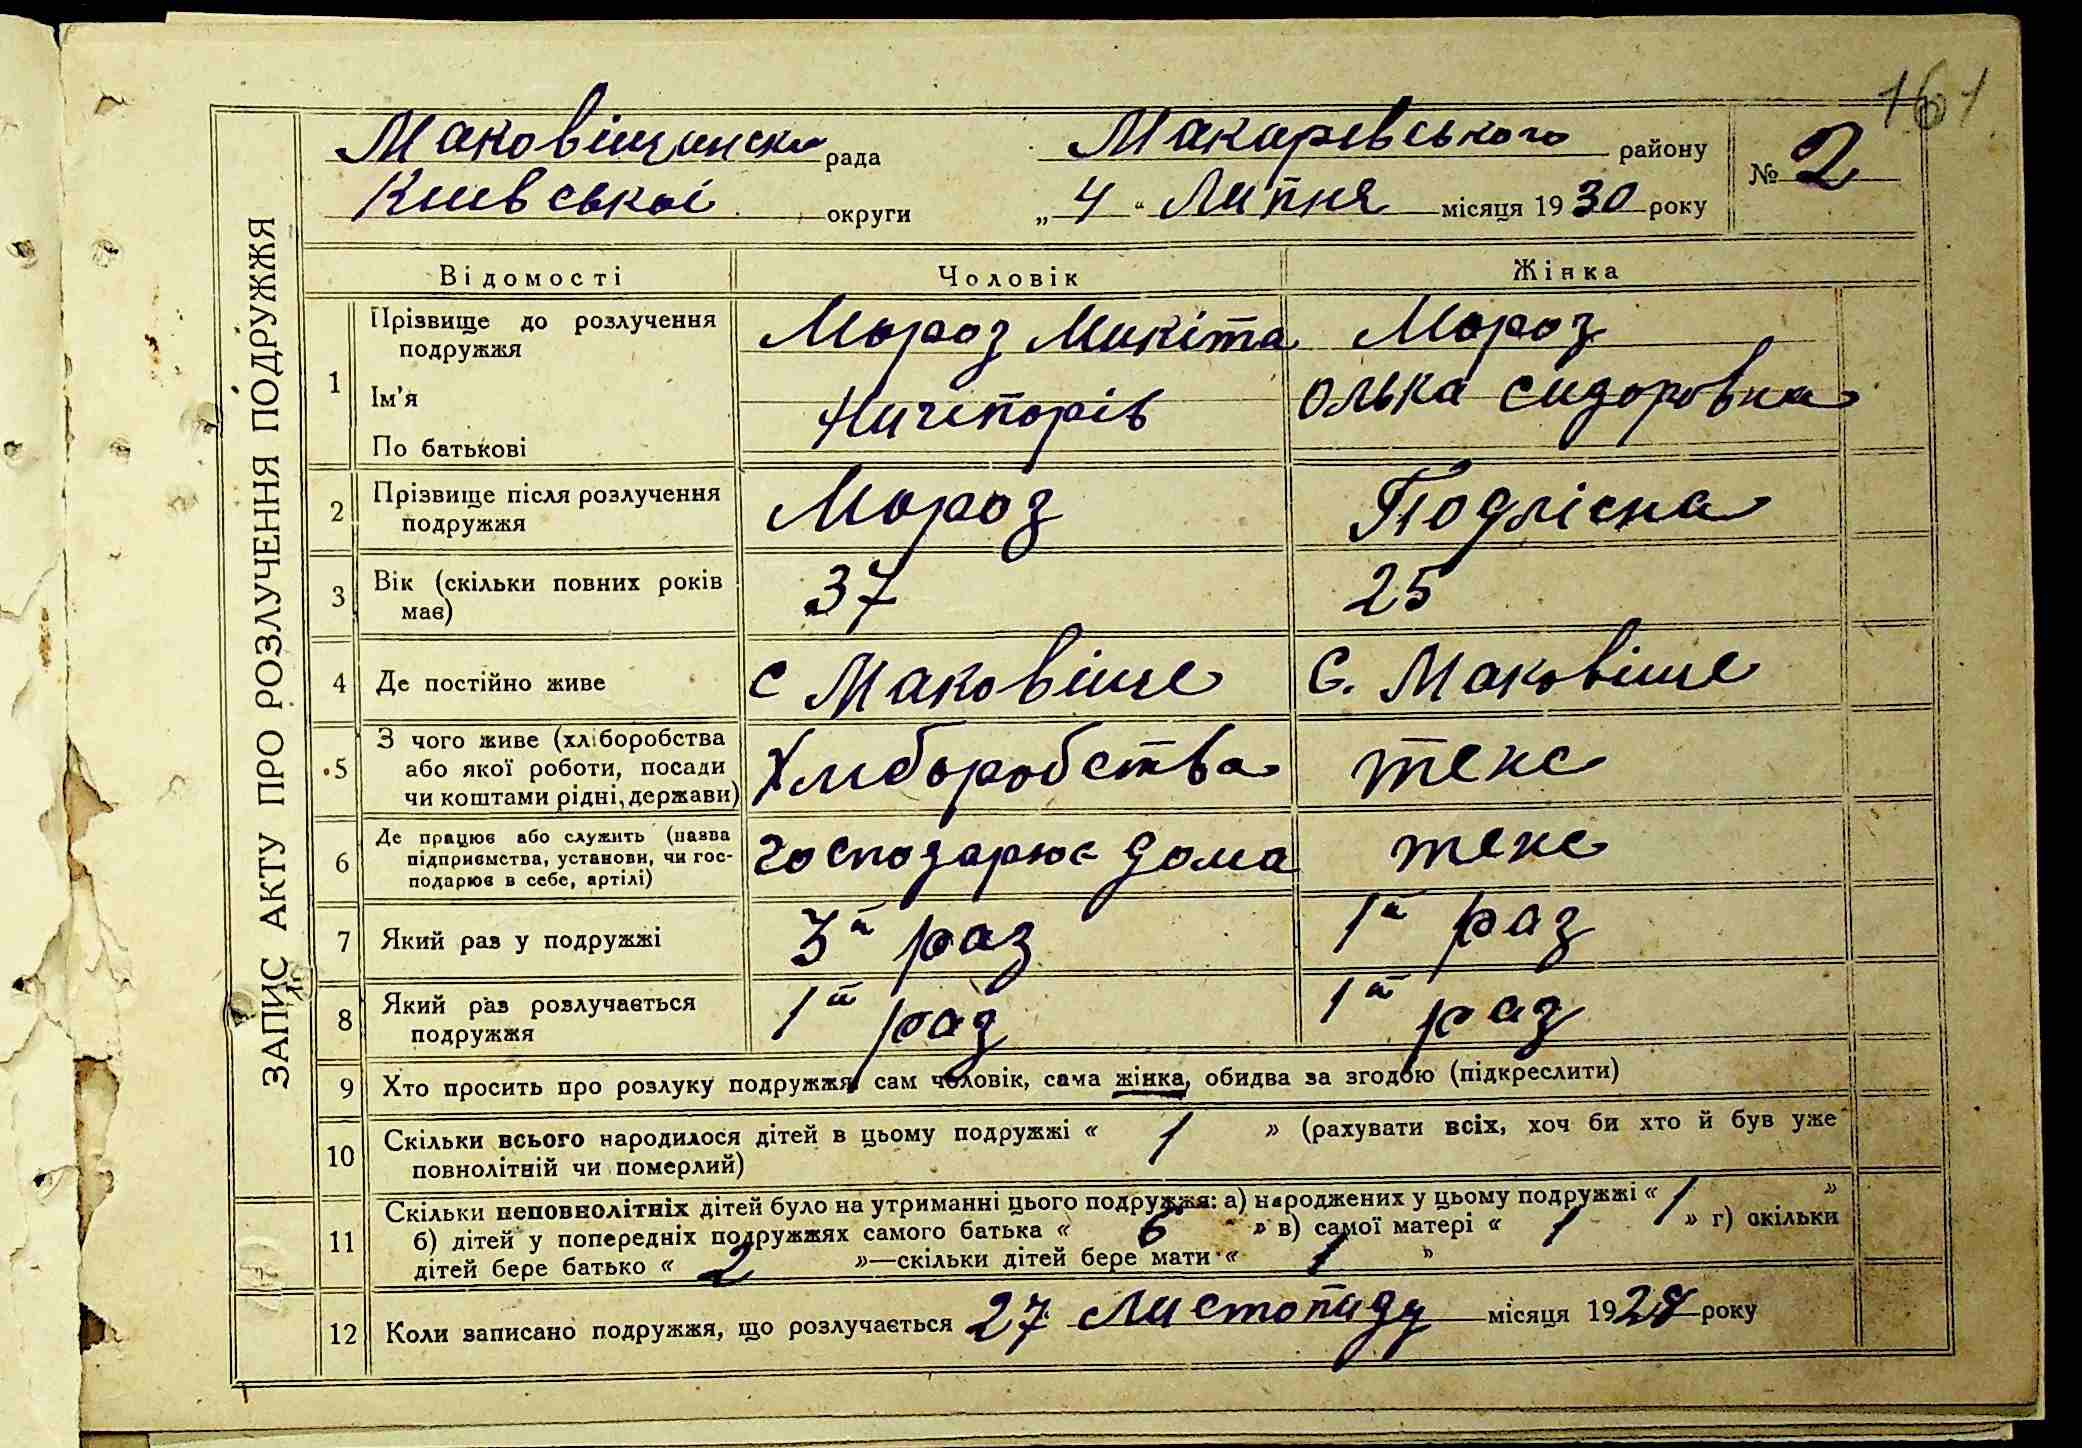 161
ЗАПИС АКТУ ПРО РОЗЛУЧЕННЯ ПОДРУЖЖЯ
Маковіщанска рада Макарівського району № 2
Киевської округи „4“ Липня місяця 1930 року
Відомості Чоловік Жінка
1 Прізвище до розлучення подружжя Мороз Микіта Мороз
Ім'я Ничипорів Олька Сидоровна
По батькові
2 Прізвище після розлучення подружжя Мороз Подлісна
3 Вік (скільки повних років має) 37 25
4 Де постійно живе с Маковіще С. Маковіще
5 З чого живе (хліборобства або якої роботи, посади чи коштами рідні, держави) Хлиборобства теже
6 Де працює або служить (назва підприємства, установи, чи господарює в себе, артілі) господарює дома теже
7 Який раз у подружжі 3й раз 1й раз
8 Який раз розлучається подружжя 1й раз 1й раз
9 Хто просить про розлуку подружжя, сам чоловік, сама жінка, обидва за згодою (підкреслити)
10 Скільки всього народилося дітей в цьому подружжі « 1 » (рахувати всіх, хоч би хто й був уже
повнолітній чи померлий)
11 Скільки неповнолітніх дітей було на утриманні цього подружжя: а) народжених у цьому подружжі « 1 »
б) дітей у попередніх подружжях самого батька « 6 » в) самої матері « 1 » г) скільки
дітей бере батько « 2 »—скільки дітей бере мати « 1 »
12 Коли записано подружжя, що розлучається 27 Листопаду місяця 1928 року